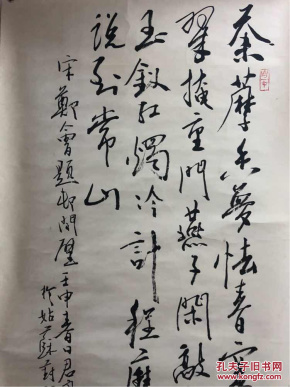 荼蘼香夢怯春寒
翠掩重門燕子閑敲
玉釵紅燭冷計程應
說到常山
宋鄭會題邸間壁壬申春日君
於姑蘇